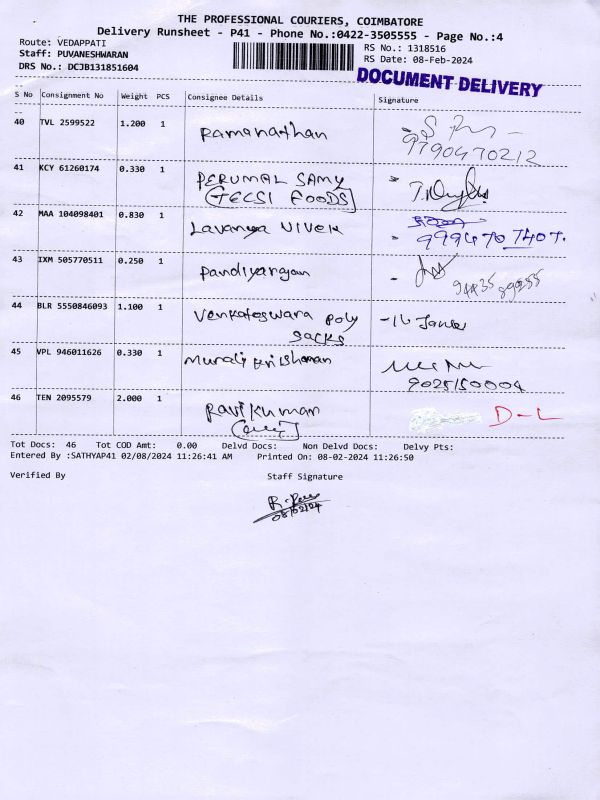 THE PROFESSIONAL COURIERS, COIMBATORE
Delivery Runsheet - P41 - Phone No.:0422-3505555 - Page No.:4
Route: VEDAPPATI
RS No.: 1318516
Staff: PUVANESHWARAN
RS Date: 08-Feb-2024
DRS No.: DCJB131851604
DOCUMENT DELIVERY
S No Consignment No Weight PCS Consignee Details Signature
40 TVL 2599522 1.200 1 Ramanathan
9790470212
41 KCY 61260174 0.330 1 PERUMAL SAMY
(TECSI FOODS)
42 MAA 104098401 0.830 1 Lavanya VIVEK
9994707407.
43 IXM 505770511 0.250 1 Pandiyarajan
44 BLR 5550846093 1.100 1 Venkateswara Poly
Sacks
45 VPL 946011626 0.330 1 Murali Krishanan
9025150004
46 TEN 2095579 2.000 1 Ravi Kumar
D-L
Tot Docs: 46 Tot COD Amt: 0.00 Delvd Docs: Non Delvd Docs: Delvy Pts:
Entered By :SATHYAP41 02/08/2024 11:26:41 AM Printed On: 08-02-2024 11:26:50
Verified By Staff Signature
08/02/24